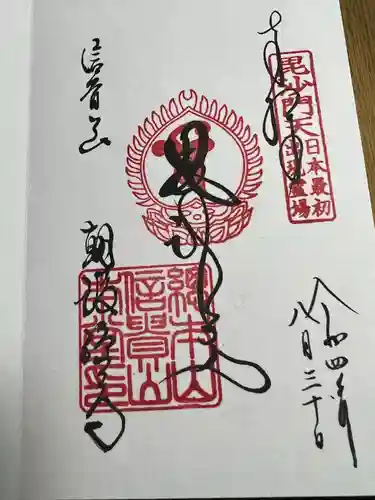 奉拝
毘沙門天王
日本最初
出現霊場
毘沙門天王
總本山
信貴山
信貴山
朝護孫子寺
令和四年
八月三十日